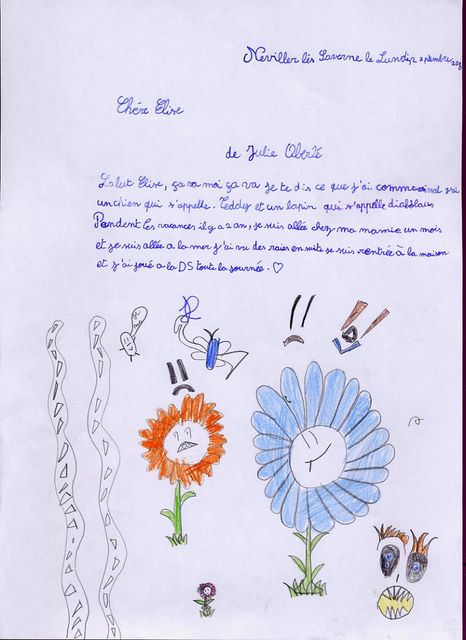 Neviller lès Saverne le Lundi,
Chère Elise
de Julie Oberlé
Salut Elise, ça va moi ça va je te dis ce que j'ai comme animal j'ai
un chien qui s'appelle. Teddy et un lapin qui s'appelle diabolaus
Pendent les vacances il y a 2 ans, je suis allée chez ma mamie un mois
et je suis allée a la mer j'ai vu des raies ensuite je suis rentrée à la maison
et j'ai joué a la DS toute la journée. ♡